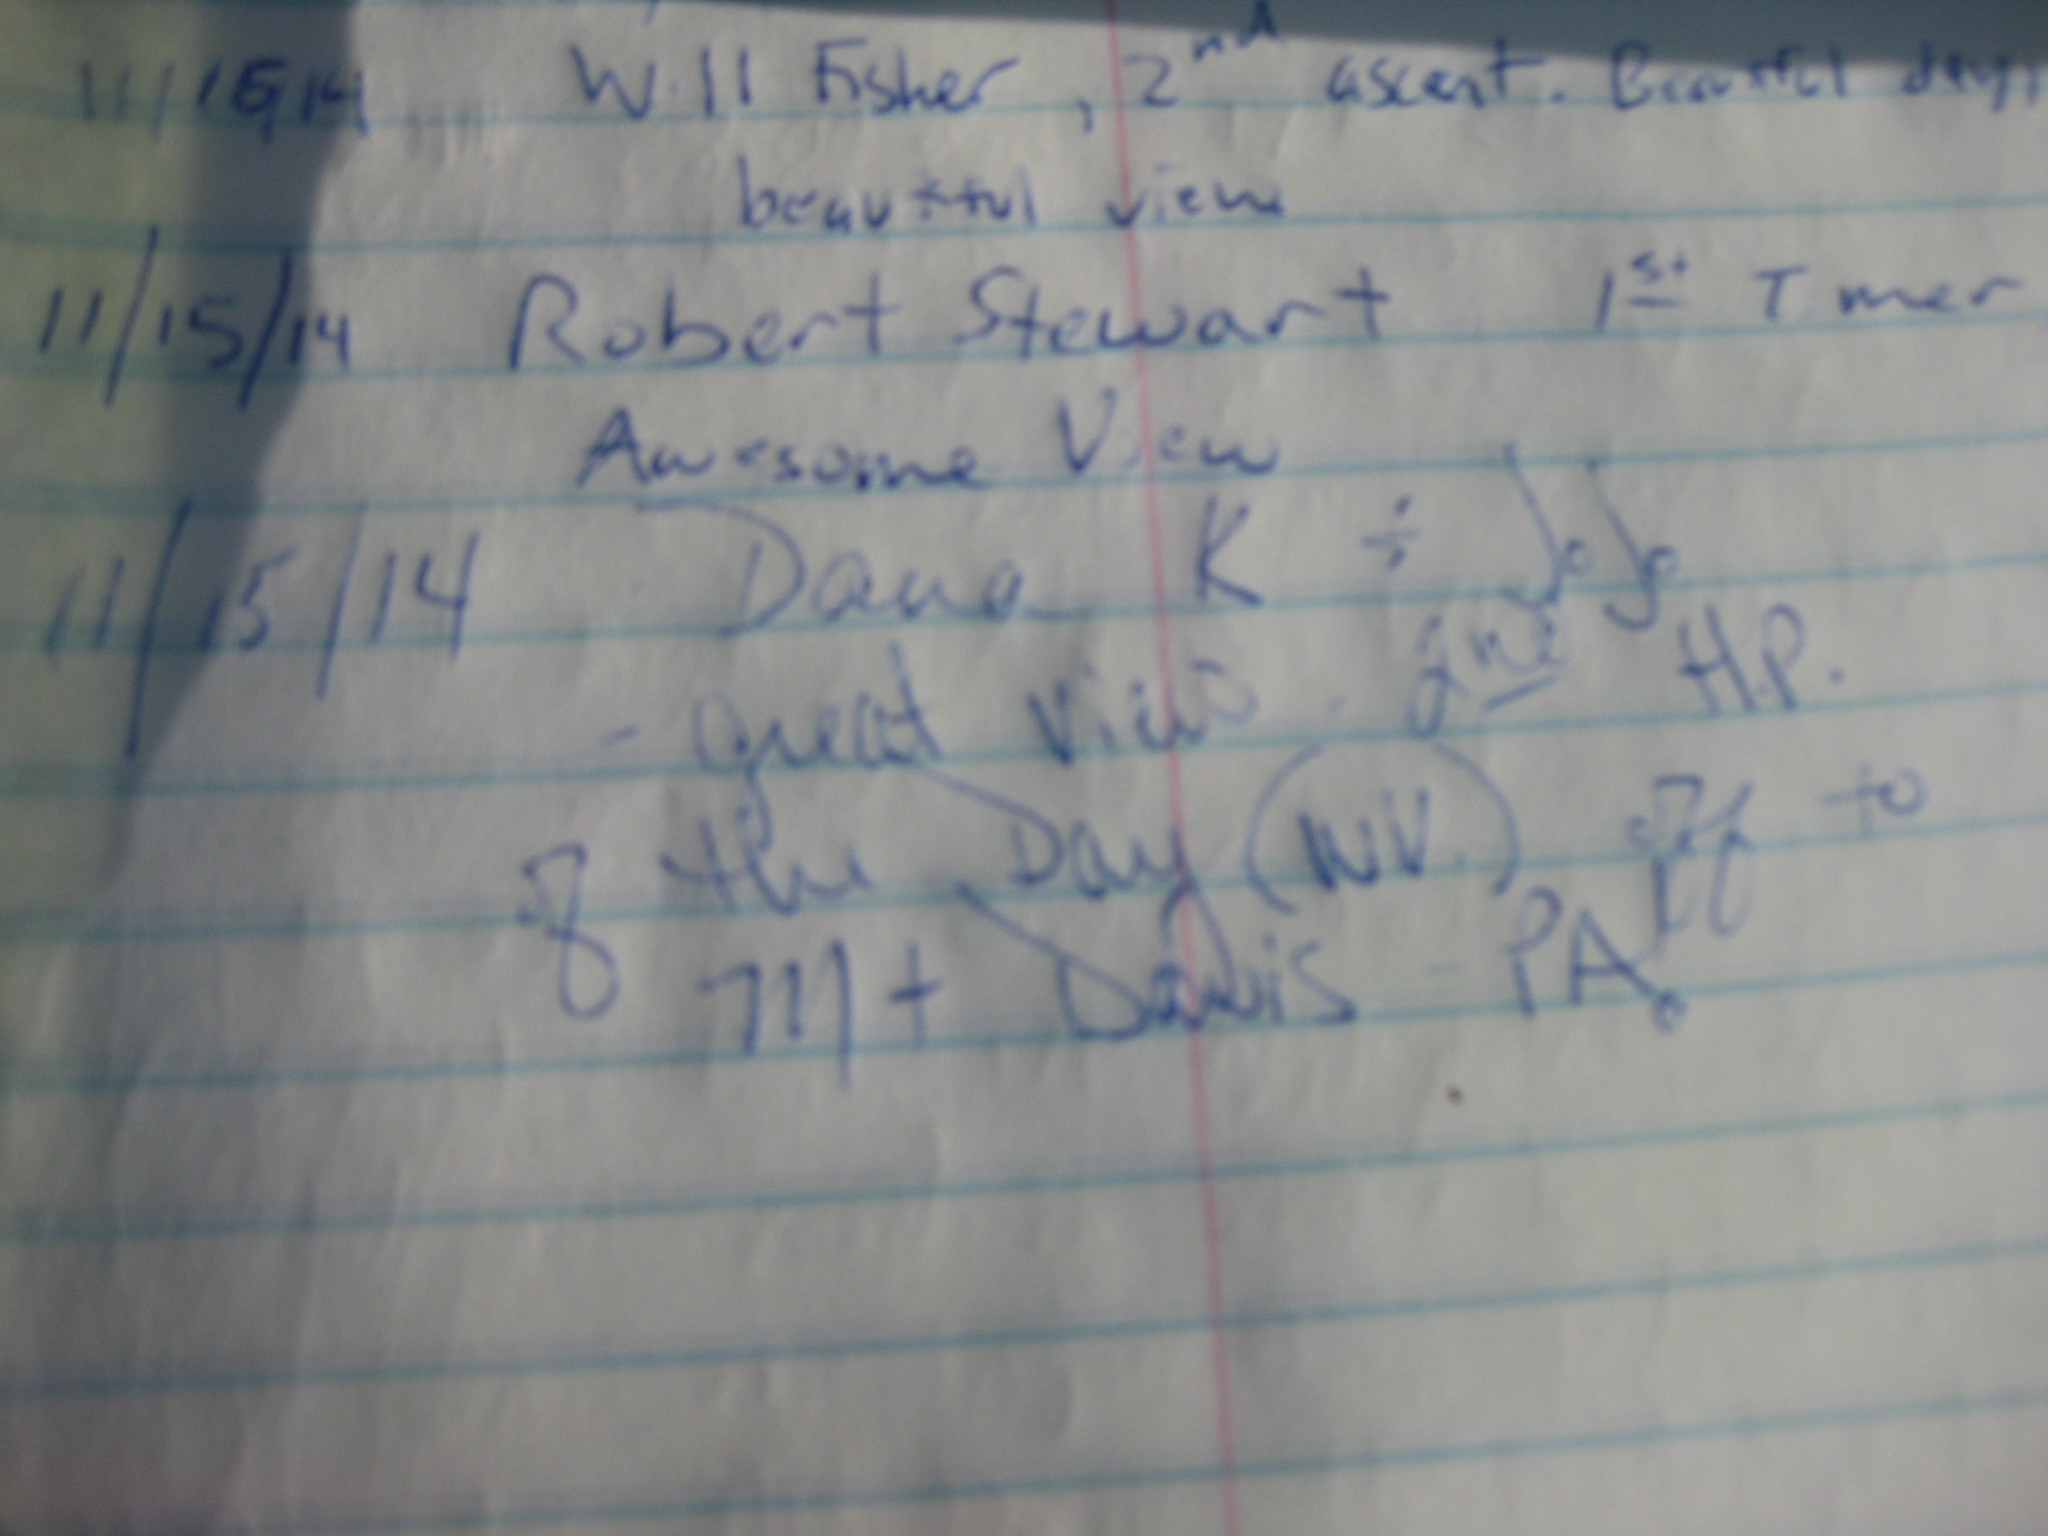 11/15/14 Will Fisher, 2nd ascent. Beautiful day,
beautiful view
11/15/14 Robert Stewart 1st Timer
Awesome View
11/15/14 Dana K & JoJo
- great view. 2nd H.P.
of the Day (WV.) off to
Mt Davis - PA.